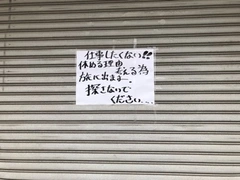 仕事したくない!!
休める理由
考える為
旅に出ます…
探さないで
ください…